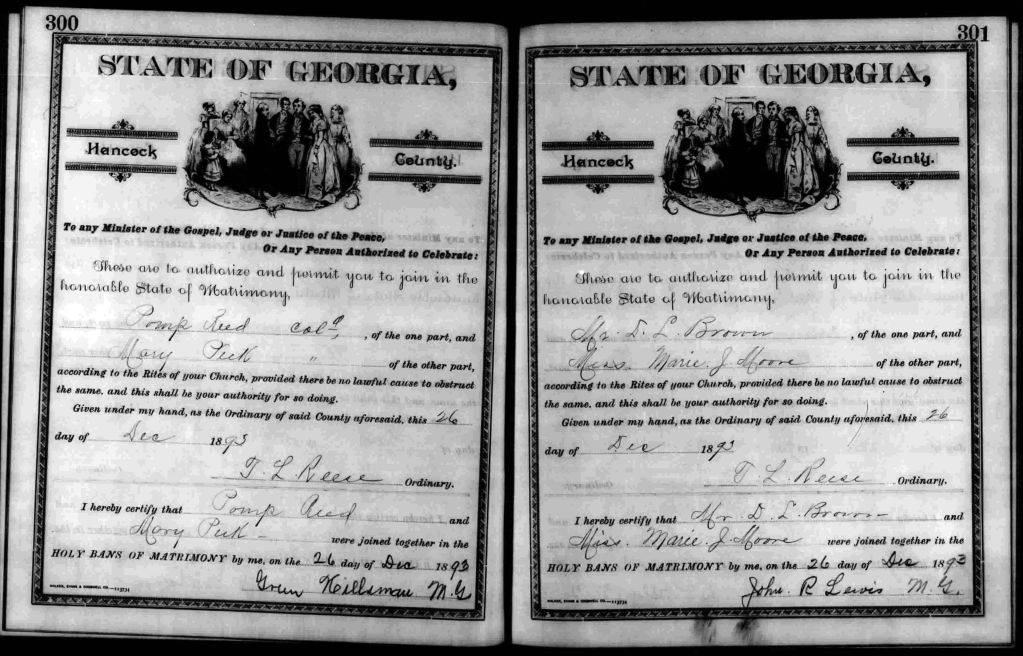 300
STATE OF GEORGIA,
Hancock
County.
To any Minister of the Gospel, Judge or Justice of the Peace,
Or Any Person Authorized to Celebrate:
These are to authorize and permit you to join in the
honorable State of Matrimony,
Pomp Reed Cold, of the one part, and
Mary Peek " of the other part,
according to the Rites of your Church, provided there be no lawful cause to obstruct
the same, and this shall be your authority for so doing.
Given under my hand, as the Ordinary of said County aforesaid, this 26
day of Dec 1893
T. L. Reese Ordinary.
I hereby certify that Pomp Reed and
Mary Peek - were joined together in the
HOLY BANS OF MATRIMONY by me, on the 26 day of Dec 1893
Green M. G.
301
STATE OF GEORGIA,
Hancock
County.
To any Minister of the Gospel, Judge or Justice of the Peace,
Or Any Person Authorized to Celebrate:
These are to authorize and permit you to join in the
honorable State of Matrimony,
Mr. D. L. Brown, of the one part, and
Miss. Marie. J. Moore of the other part,
according to the Rites of your Church, provided there be no lawful cause to obstruct
the same, and this shall be your authority for so doing.
Given under my hand, as the Ordinary of said County aforesaid, this 26
day of Dec 1893
T. L. Reese Ordinary.
I hereby certify that Mr. D. L. Brown - and
Miss. Marie. J. Moore were joined together in the
HOLY BANS OF MATRIMONY by me, on the 26 day of Dec 1893
John. R. Lewis M. G.